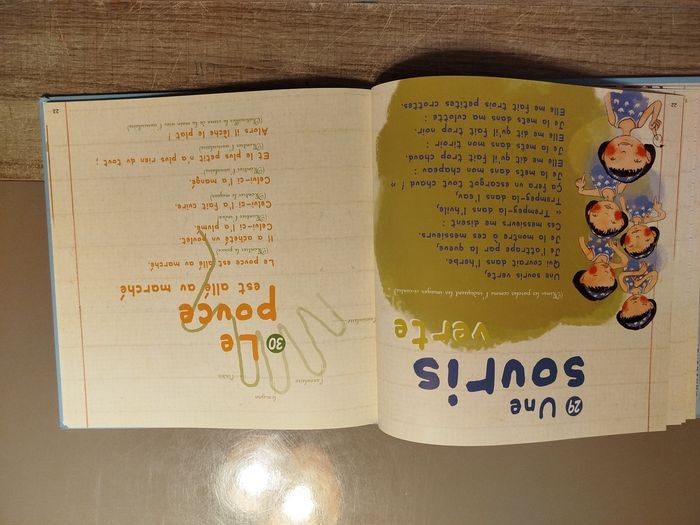 29 Une
souris
verte
(Mimer les paroles comme l'indiquent les images ci-contre)
Une souris verte,
Qui courait dans l'herbe.
Je l'attrape par la queue,
Je la montre à ces messieurs.
Ces messieurs me disent :
« Trempez-la dans l'huile,
Trempez-la dans l'eau,
Ça fera un escargot tout chaud ! »
Je la mets dans mon chapeau :
Elle me dit qu'il fait trop chaud.
Je la mets dans mon tiroir :
Elle me dit qu'il fait trop noir.
Je la mets dans ma culotte :
Elle me fait trois petites crottes.
22
le majeur
l'index
l'annulaire
l'auriculaire
30 Le
pouce
est allé au marché
Le pouce est allé au marché.
(Montrer le pouce)
Il a acheté un poulet.
(Montrer l'index)
Celui-ci l'a plumé.
(Montrer le majeur)
Celui-ci l'a fait cuire.
(Montrer l'annulaire)
Celui-ci l'a mangé.
(Montrer l'auriculaire)
Et le plus petit n'a plus rien du tout ;
Alors il lèche le plat !
23